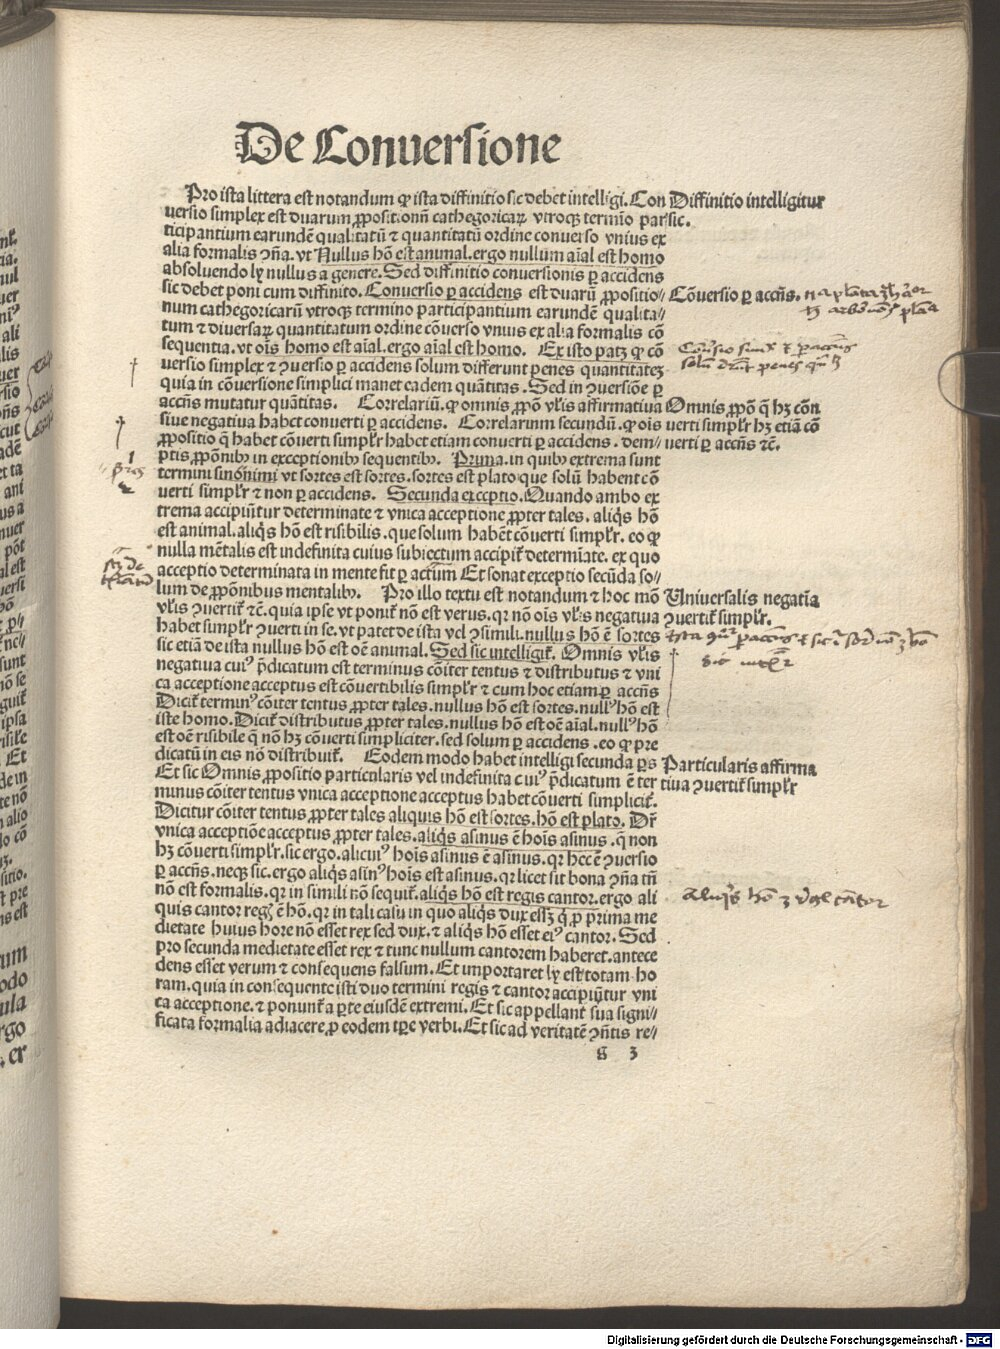 De Conuersione
Pro ista littera est notandum ꝙ ista diffinitio sic debet intelligi. Con
uersio simplex est duarum ꝓpositionũ cathegoricaꝝ vtroqꝫ termĩo par
ticipantium earundẽ qualitatũ ⁊ quantitatũ ordine conuerso vnius ex
alia formalis ꝯña. vt Nullus hõ est animal. ergo nullum aĩal est homo
absoluendo lꝫ nullus a genere. Sed diffinitio conuersionis ꝑ accidens
sic debet poni cum diffinito. Conuersio ꝑ accidens est duarũ ꝓpositio⸗
num cathegoricarũ vtroqꝫ termino participantium earundẽ qualita⸗
tum ⁊ diuersaꝝ quantitatum ordine cõuerso vnius ex alia formalis cõ
sequentia. vt oĩs homo est aĩal. ergo aĩal est homo. Ex isto patꝫ ꝙ cõ
uersio simplex ⁊ ꝯuersio ꝑ accidens solum differunt penes quantitatẽ
quia in cõuersione simplici manet eadem quãtitas. Sed in ꝯuersiõe ꝑ
accñs mutatur quãtitas. Correlariũ. ꝙ omnis ꝓpõ vl̃is affirmatiua
siue negatiua habet conuerti ꝑ accidens. Correlarium secundũ. ꝙ oĩs
ꝓpositio q̃ habet cõuerti simpl̃r habet etiam conuerti ꝑ accidens. dem⸗
ptis ꝓpõnibꝫ in exceptionibꝫ sequentibꝫ. Prima. in quibꝫ extrema sunt
termini sinonimi vt sortes est sortes. sortes est plato que solũ habent cõ
uerti simpl̃r ⁊ non ꝑ accidens. Secunda exceptio. Quando ambo ex
trema accipiũtur determinate ⁊ vnica acceptione ꝓpter tales. aliq̃s hõ
est animal. aliq̃s hõ est risibilis. que solum habẽt cõuerti simpl̃r. eo ꝙ
nulla mẽtalis est indefinita cuius subiectum accipit̃ determĩate. ex quo
acceptio determinata in mente fit ꝑ actum Et sonat exceptio secũda so⸗
lum de ꝓpõnibus mentalibꝫ. Pro illo textu est notandum ⁊ hoc mõ
vl̃is ꝯuertit̃ ⁊c̃. quia ipse vt ponit̃ nõ est verus. qꝛ nõ oĩs vl̃is negatiua
habet simpl̃r ꝯuerti in se. vt patet de ista vel ꝯsimili. nullus hõ ẽ sortes
sic etiã de ista nullus hõ est oẽ animal. Sed sic intelligit̃. Omnis vl̃is
negatiua cuiꝰ p̃dicatum est terminus cõiter tentus ⁊ distributus ⁊ vni
ca acceptione acceptus est cõuertibilis simpl̃r ⁊ cum hoc etiam ꝑ accñs
Dicit̃ terminꝰ cõiter tentus ꝓpter tales. nullus hõ est sortes. nullꝰ hõ est
iste homo. Dicit̃ distributus ꝓpter tales. nullus hõ est oẽ aĩal. nullꝰ hõ
est oẽ risibile q̃ nõ hꝫ cõuerti simpliciter. sed solum ꝑ accidens. eo ꝙ pre
dicatũ in eis nõ distribuit̃. Eodem modo habet intelligi secunda ꝑs
Et sic Omnis ꝓpositio particularis vel indefinita cuiꝰ p̃dicatum ẽ ter
minus cõiter tentus vnica acceptione acceptus habet cõuerti simplicit̃.
Dicitur cõiter tentus ꝓpter tales aliquis hõ est sortes. hõ est plato. Dr̃
vnica acceptiõe acceptus ꝓpter tales. aliq̃s asinus ẽ hoĩs asinus. q̃ non
hꝫ cõuerti simpl̃r. sic ergo. alicuiꝰ hoĩs asinus ẽ asinus. qꝛ hec ẽ ꝯuersio
ꝑ accñs. neqꝫ sic. ergo aliq̃s asinꝰ hoĩs est asinus. qꝛ licet sit bona ꝯña tñ
nõ est formalis. qꝛ in simili nõ sequit̃. aliq̃s hõ est regis cantor. ergo ali
quis cantor regꝭ ẽ hõ. qꝛ in tali casu in quo aliq̃s dux essꝫ q̃ ꝓ prima me
dietate huius hore nõ esset rex sed dux. ⁊ aliq̃s hõ esset eiꝰ cantor. Sed
pro secunda medietate esset rex ⁊ tunc nullum cantorem haberet. antece
dens esset verum ⁊ consequens falsum. Et importaret lꝫ est totam ho
ram. quia in consequente isti duo termini regis ⁊ cantor accipiũtur vni
ca acceptione. ⁊ ponunt̃ a ꝑte eiusdẽ extremi. Et sic appellant sua signi⸗
ficata formalia adiacere ꝓ eodem tꝑe verbi. Et sic ad veritatẽ ꝯñtis re⸗
g 3
Diffinitio intelligitur
sic.
Cõuersio ꝑ accñs.
Omnis ꝓpõ q̃ hꝫ cõn
uerti simpl̃r hꝫ etiã cõ
uerti ꝑ accñs ⁊c̃.
Uniuersalis negatĩa
ꝯuertit̃ simpl̃r.
Particularis affirma
tiua ꝯuertit̃ simpl̃r
Digitalisierung gefördert durch die Deutsche Forschungsgemeinschaft - DFG